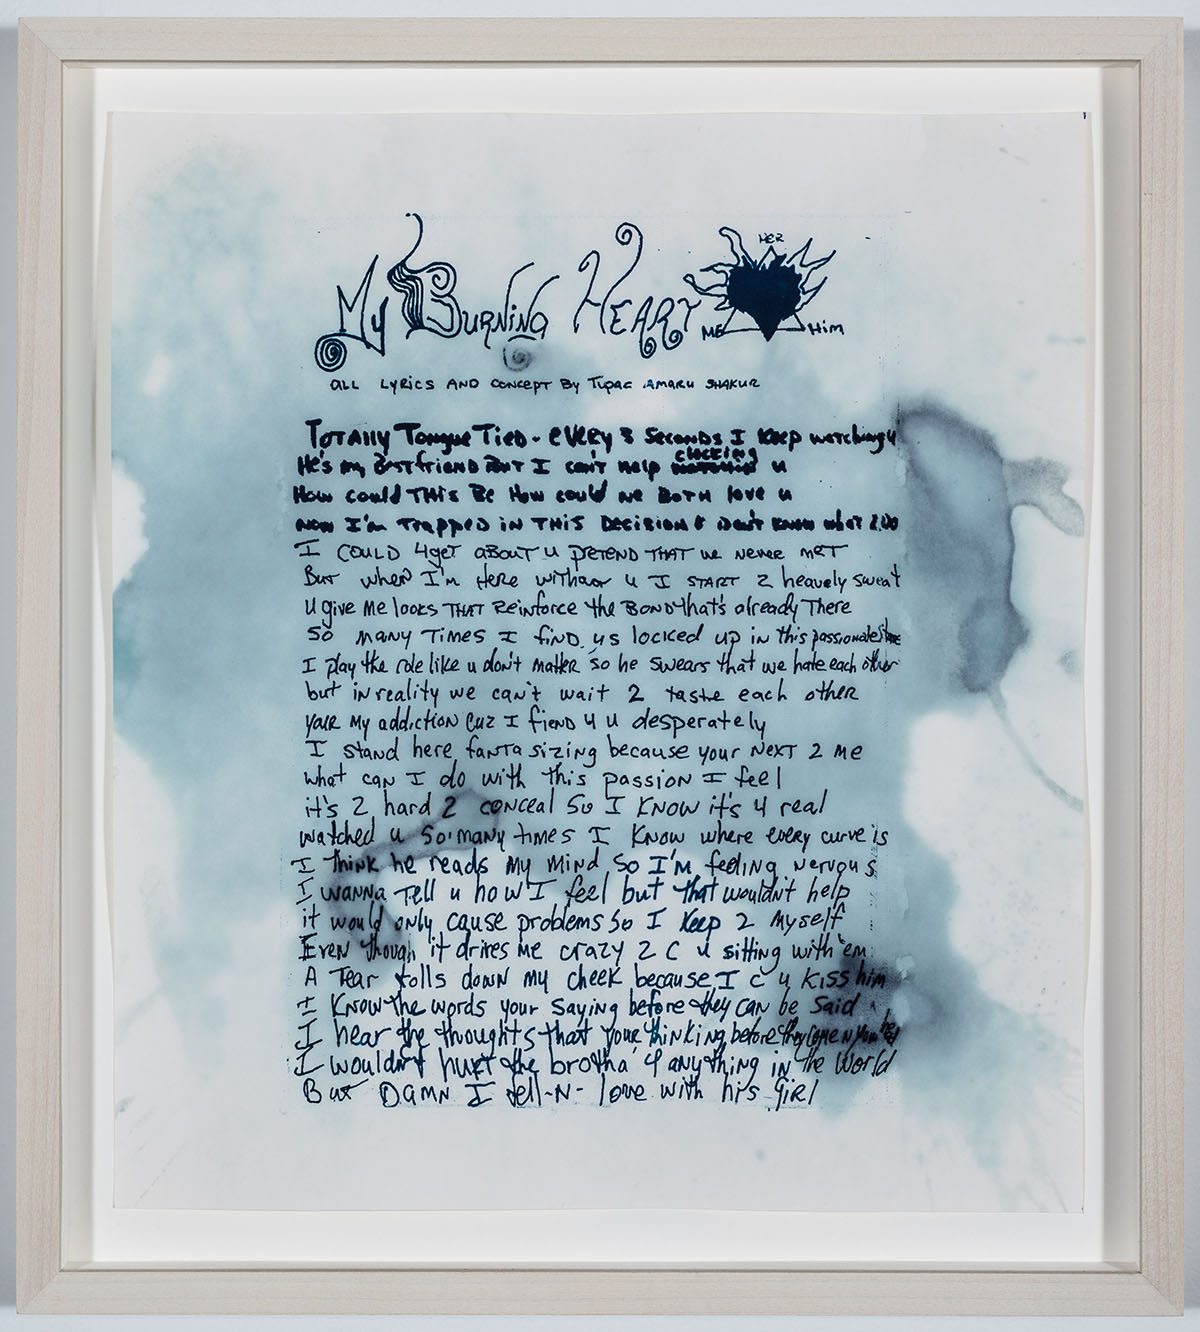 My Burning Heart
HER
ME
Him
ALL LYRICS AND CONCEPT By Tupac AMARU SHAKUR
TOTAlly Tongue TieD - EVERy 3 Seconds I keep watching u
He's my Bestfriend But I can't help clocking u
How could THIS Be How could we BOTH love u
now I'm TRAPPED IN THIS DECISION & Don't know what 2 do
I COULD 4get aBOUT u PRETEND THAT we never MET
But when I'm Here without u I START 2 heavely sweat
u give me looks THAT Reinforce the BOND that's already There
So many Times I find us locked up in this passionate stare
I play the role like u don't matter so he swears that we hate each other
but in reality we can't wait 2 taste each other
your my addiction cuz I fiend 4 u desperately
I stand here fantasizing because your NEXT 2 me
what can I do with this passion I feel
it's 2 hard 2 conceal So I KNOW it's 4 real
watched u So many times I KNOW where every curve is
I think he reads my mind so I'm feeling nervous
I wanna Tell u how I feel but that wouldn't help
it would only cause problems So I keep 2 myself
Even though it drives me crazy 2 C u sitting with 'em
A Tear rolls down my cheek because I C u kiss him
I Know the words your saying before they can be said
I hear the thoughts that your thinking before they come n your head
I wouldn't hurt the brotha' 4 anything in the World
But DAMN I fell-N- love with his girl